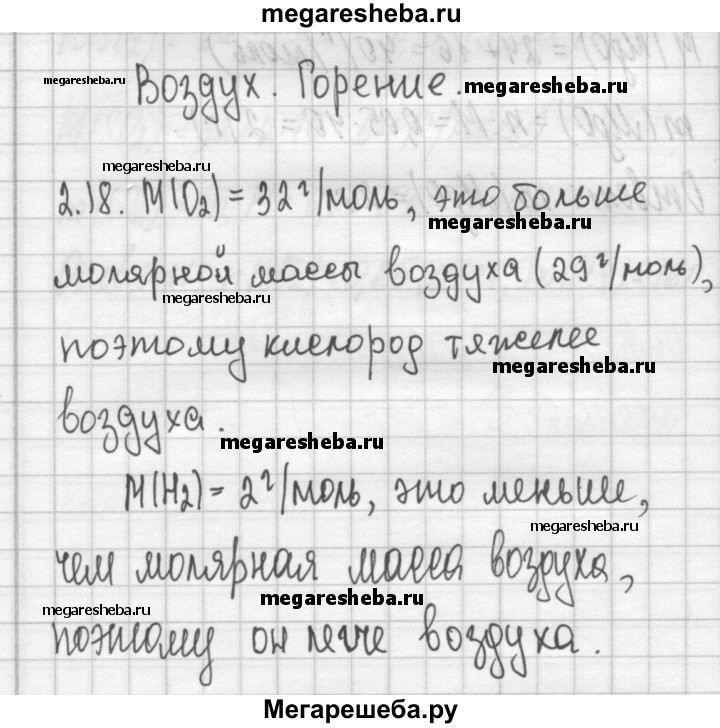 megaresheba.ru
megaresheba.ru
Воздух. Горение.
megaresheba.ru
megaresheba.ru
2.18. M(O₂) = 32 г/моль, это больше
megaresheba.ru
молярной массы воздуха (29 г/моль),
megaresheba.ru
поэтому кислород тяжелее
megaresheba.ru
воздуха.
megaresheba.ru
M(H₂) = 2 г/моль, это меньше,
megaresheba.ru
чем молярная масса воздуха,
megaresheba.ru
megaresheba.ru
поэтому он легче воздуха.
Мегарешеба.ру